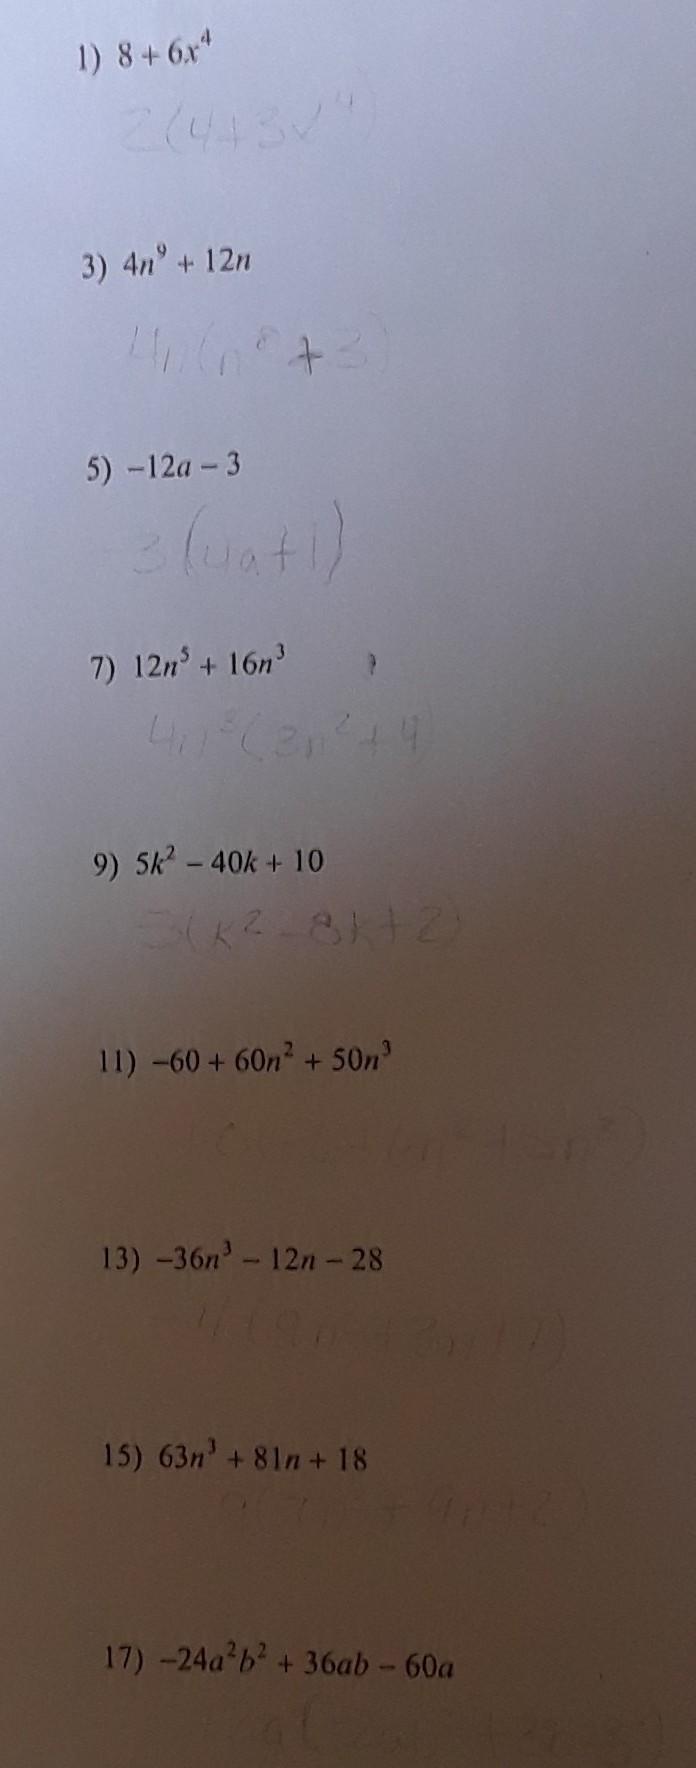 1) 8 + 6x⁴
2(4+3x⁴)
3) 4n⁹ + 12n
4n(n⁸ + 3)
5) −12a − 3
-3(4a+1)
7) 12n⁵ + 16n³
4n³(3n²+4
9) 5k² − 40k + 10
5(k²-8k+2)
11) −60 + 60n² + 50n³
13) −36n³ − 12n − 28
15) 63n³ + 81n + 18
17) −24a²b² + 36ab − 60a